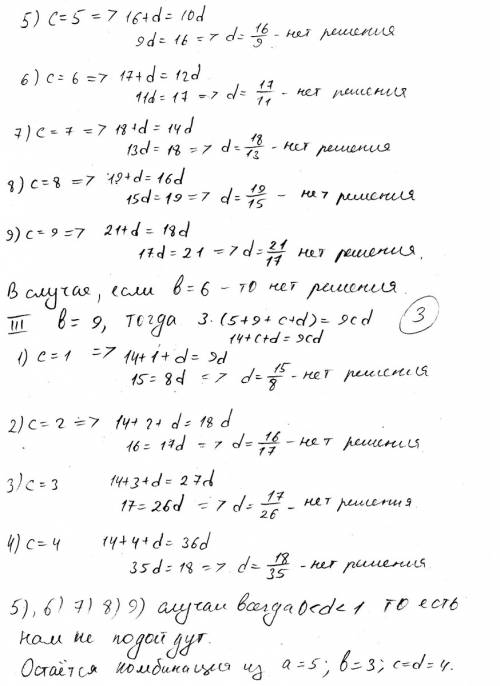 5) c=5 => 16+d=10d
9d=16 => d=16/9 - нет решения
6) c=6 => 17+d=12d
11d=17 => d=17/11 - нет решения
7) c=7 => 18+d=14d
13d=18 => d=18/13 - нет решения
8) c=8 => 19+d=16d
15d=19 => d=19/15 - нет решения
9) c=9 => 21+d=18d
17d=21 => d=21/17 нет решения.
В случае, если b=6 - то нет решения.
III b=9, тогда 3·(5+9+c+d)=9cd (3)
14+c+d=9cd
1) c=1 => 14+1+d=9d
15=8d => d=15/8 - нет решения
2) c=2 => 14+2+d=18d
16=17d => d=16/17 - нет решения
3) c=3 14+3+d=27d
17=26d => d=17/26 - нет решения
4) c=4 14+4+d=36d
35d=18 => d=18/35 - нет решения
5), 6) 7) 8) 9) случаи всегда 0<d<1 то есть
нам не подойдут.
Остаётся комбинация из a=5; b=3; c=d=4.